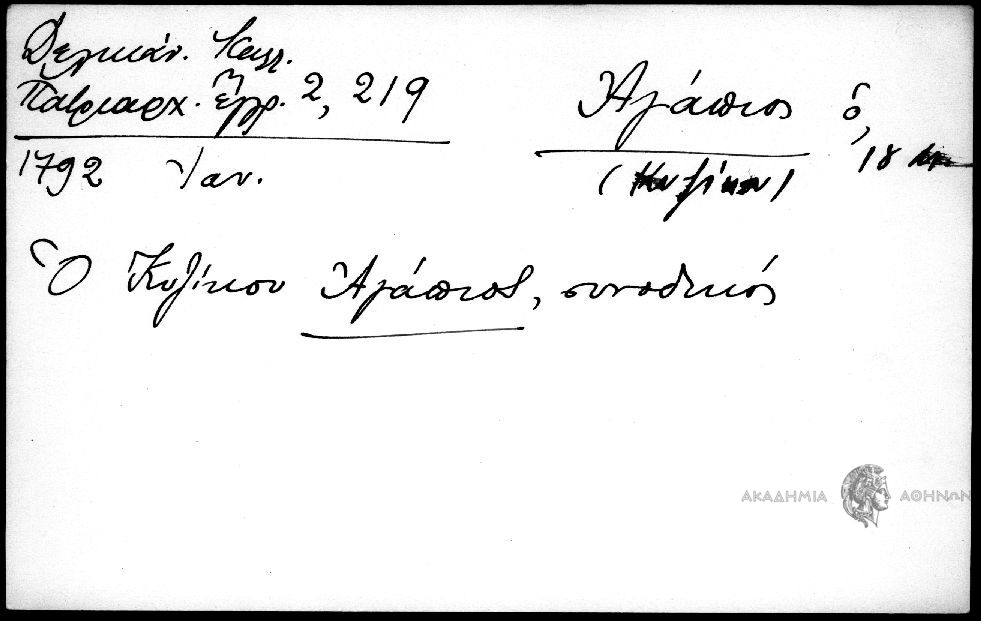 Δελικάν. Καλλ.
Πατριαρχ. ἔγγρ. 2, 219
1792 Ἰαν.
Ἀγάπιος ὁ,
(Κυζίκου) 18
Ὁ Κυζίκου Ἀγάπιος, συνοδικός
ΑΚΑΔΗΜΙΑ ΑΘΗΝΩΝ